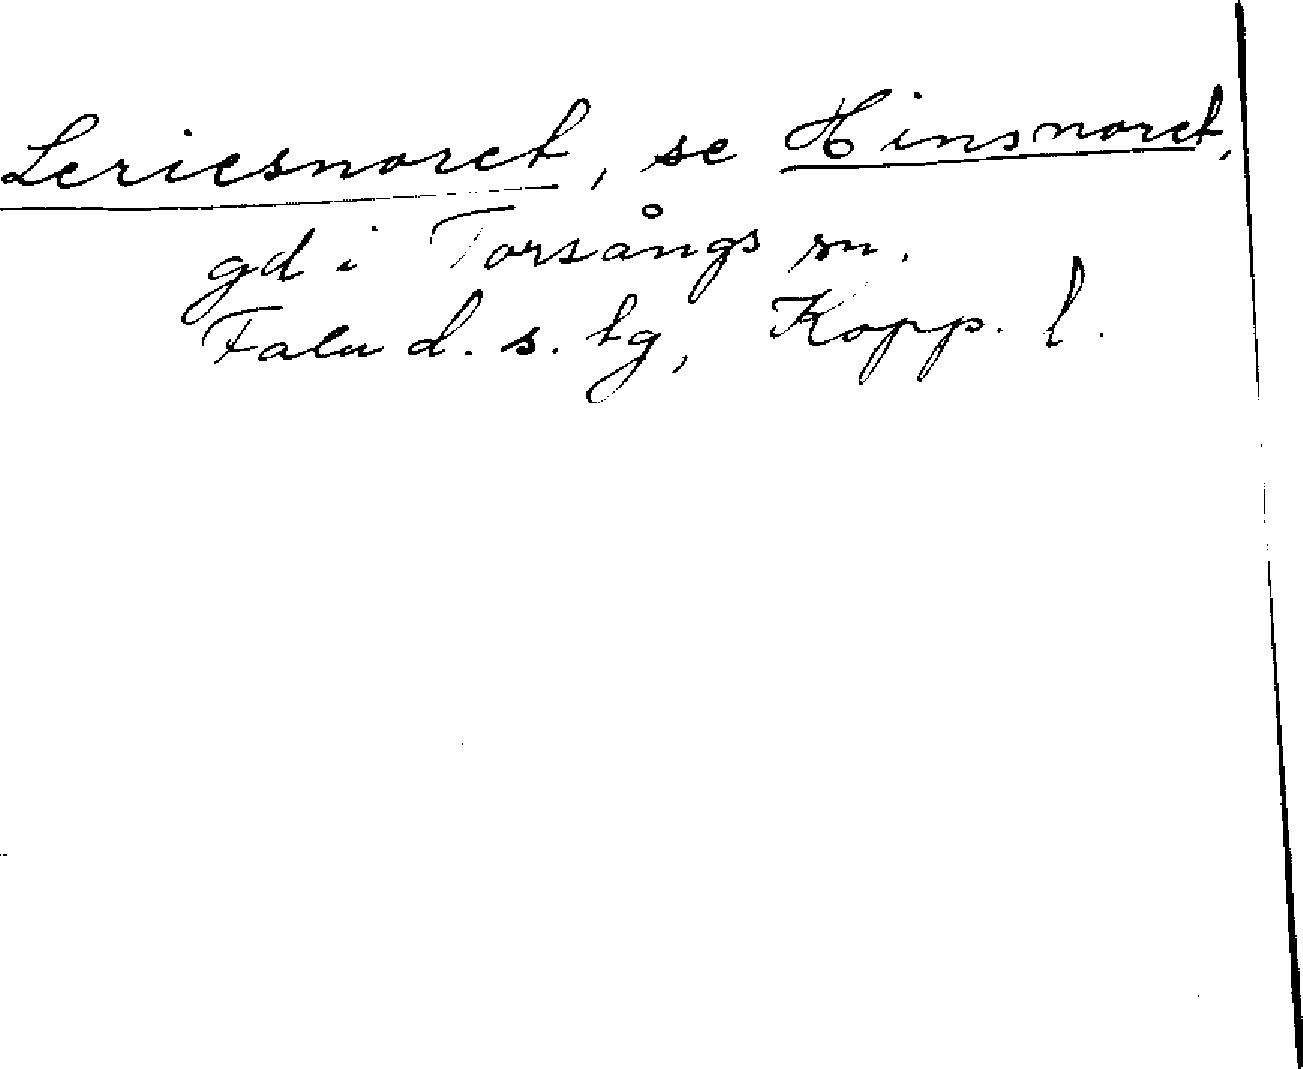 Leriesnoret, se Hinsnoret,
gd i Torsångs sn.
Falu d. s. tg, Kopp. l.